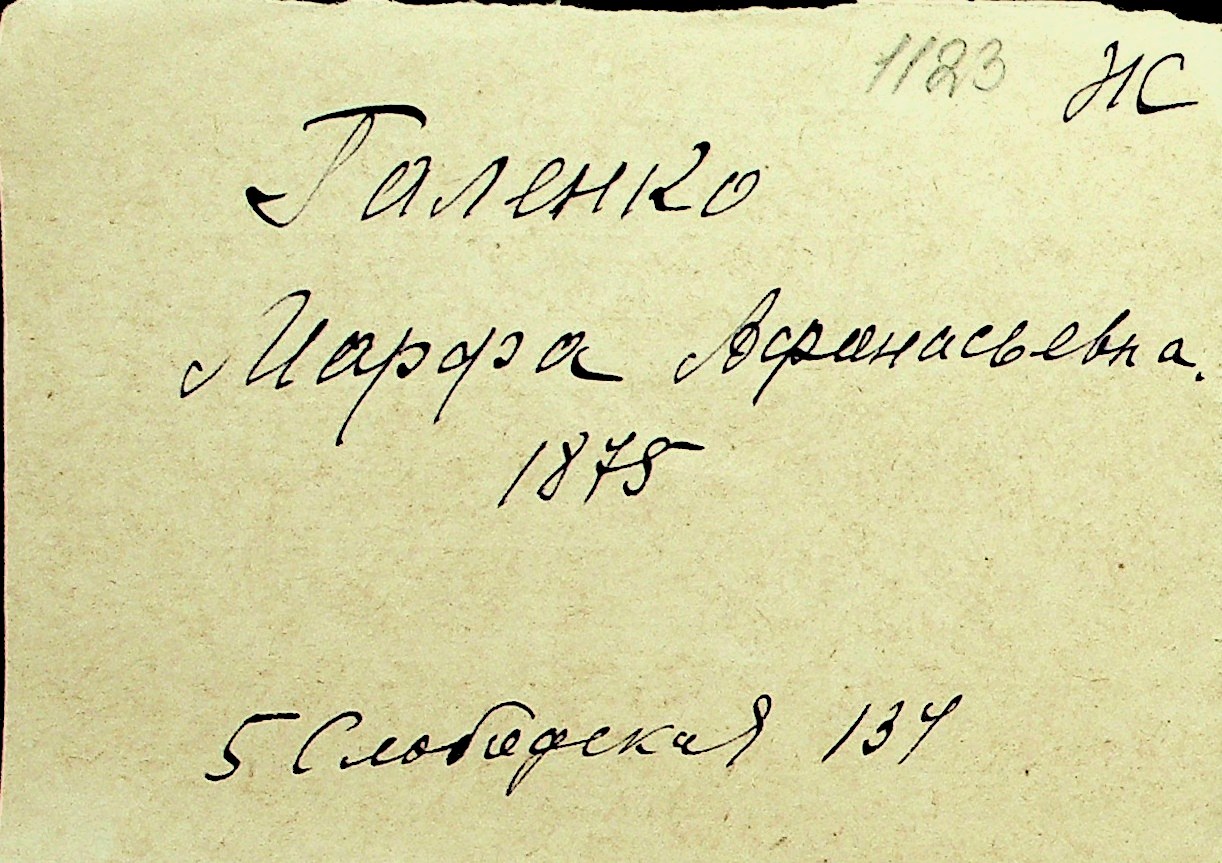 1123 НС
Галенко
Марфа Афанасьевна.
1875
5 Слободская 134